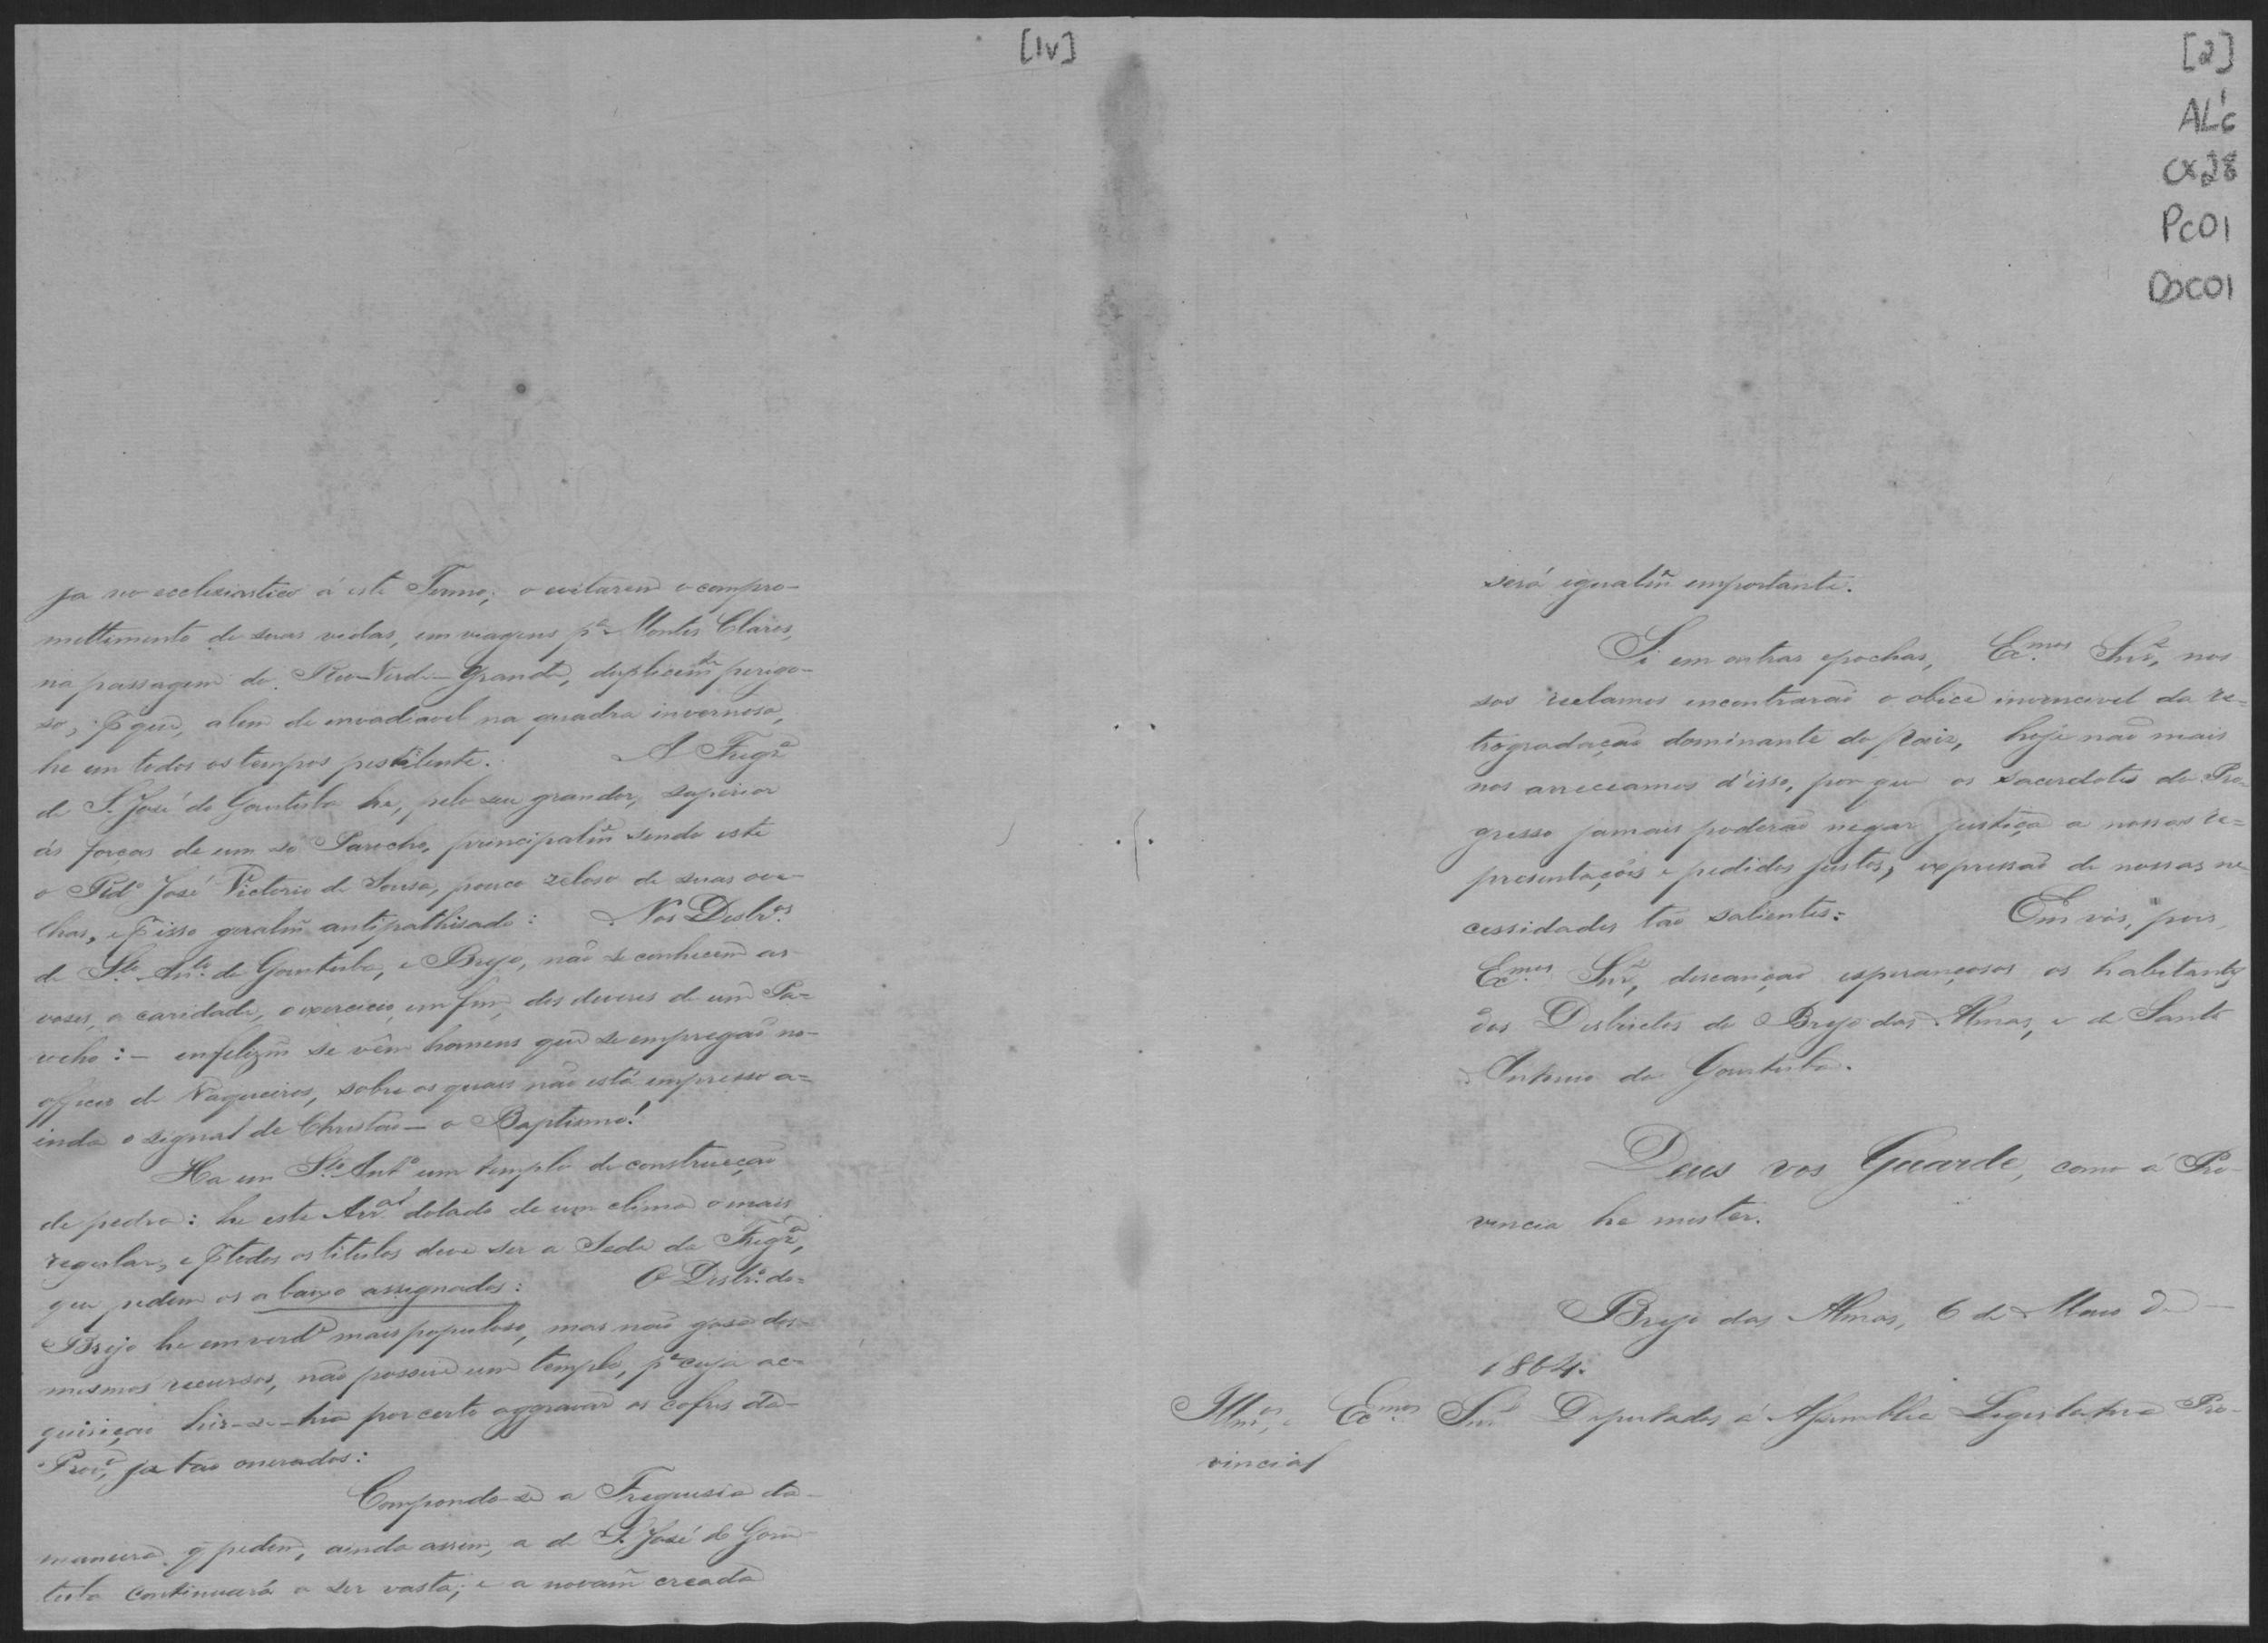 [1v]
ja no ecclesiastico á este Termo; o evitarem o compro-
mettimento de suas vidas, em viagens pª Montes Claros,
na passagem do Rio-Verde-Grande, duplicemte perigo-
so, pr que, alem de invadiavel na quadra invernosa,
he em todos os tempos pestilente. A Fregª
de S. José do Gorutuba he, pelo seu grandor, superior
ás forças de um só Parocho, principalmе sendo este
o Pdº José Victorio de Sousa, pouco zeloso de suas ove-
lhas, e pr isso geralmе antipathisado: Nos Distros
de Stº Antº de Gorutuba, e Brejo, não se conhecem as
vozes, a caridade, o exercicio em fim, dos deveres de um Pa-
rocho: - infelizmе se vêm homens que se empregão no
officio de Vaqueiros, sobre os quaes não está impresso a=
inda o signal de Christão - o Baptismo!
Ha em Stº Antº um templo de construcção
de pedra: he este Arral dotado de um clima o mais
regular, e pr todos os titulos deve ser a Sede da Fregª,
que pedem os abaixo assignados: O Distrº do
Brejo he em verde mais populoso, mas não gosa dos
mesmos recursos, não possue um templo, pª cuja ac-
quisição hir-se-hia por certo aggravar os cofres da
Provª, ja tão onerados:
Compondo-se a Freguesia da
maneira q̃ pedem, ainda assim, a de S. José do Goru
tuba continuará a ser vasta; e a novamе creada
[2]
AL1c
CX28
Pc01
DOC01
será igualmе importante.
Si em outras epochas, Ex.mos Snrs, nos
sos reclamos encontrarão o obice invencivel da re=
trogradação dominante do paiz, hoje não mais
nos arreceamos d'isso, por que os sacerdotes do Pro=
gresso jamais poderão negar justiça a nossas re=
presentações e pedidos justos, expressão de nossas ne
cessidades tão salientes: Em vós, pois,
Ex.mos Snrs, descanção esperançosos os habitantes
dos Districtos de Brejo das Almas, e de Santo
Antonio do Gorutuba.
Deus vos Guarde, como á Pro-
vincia he mister.
Brejo das Almas, 6 de Maio de
1864.
Illmos, e Ex.mos Snrs Deputados á Assemblea Legislativa Pro-
vincial